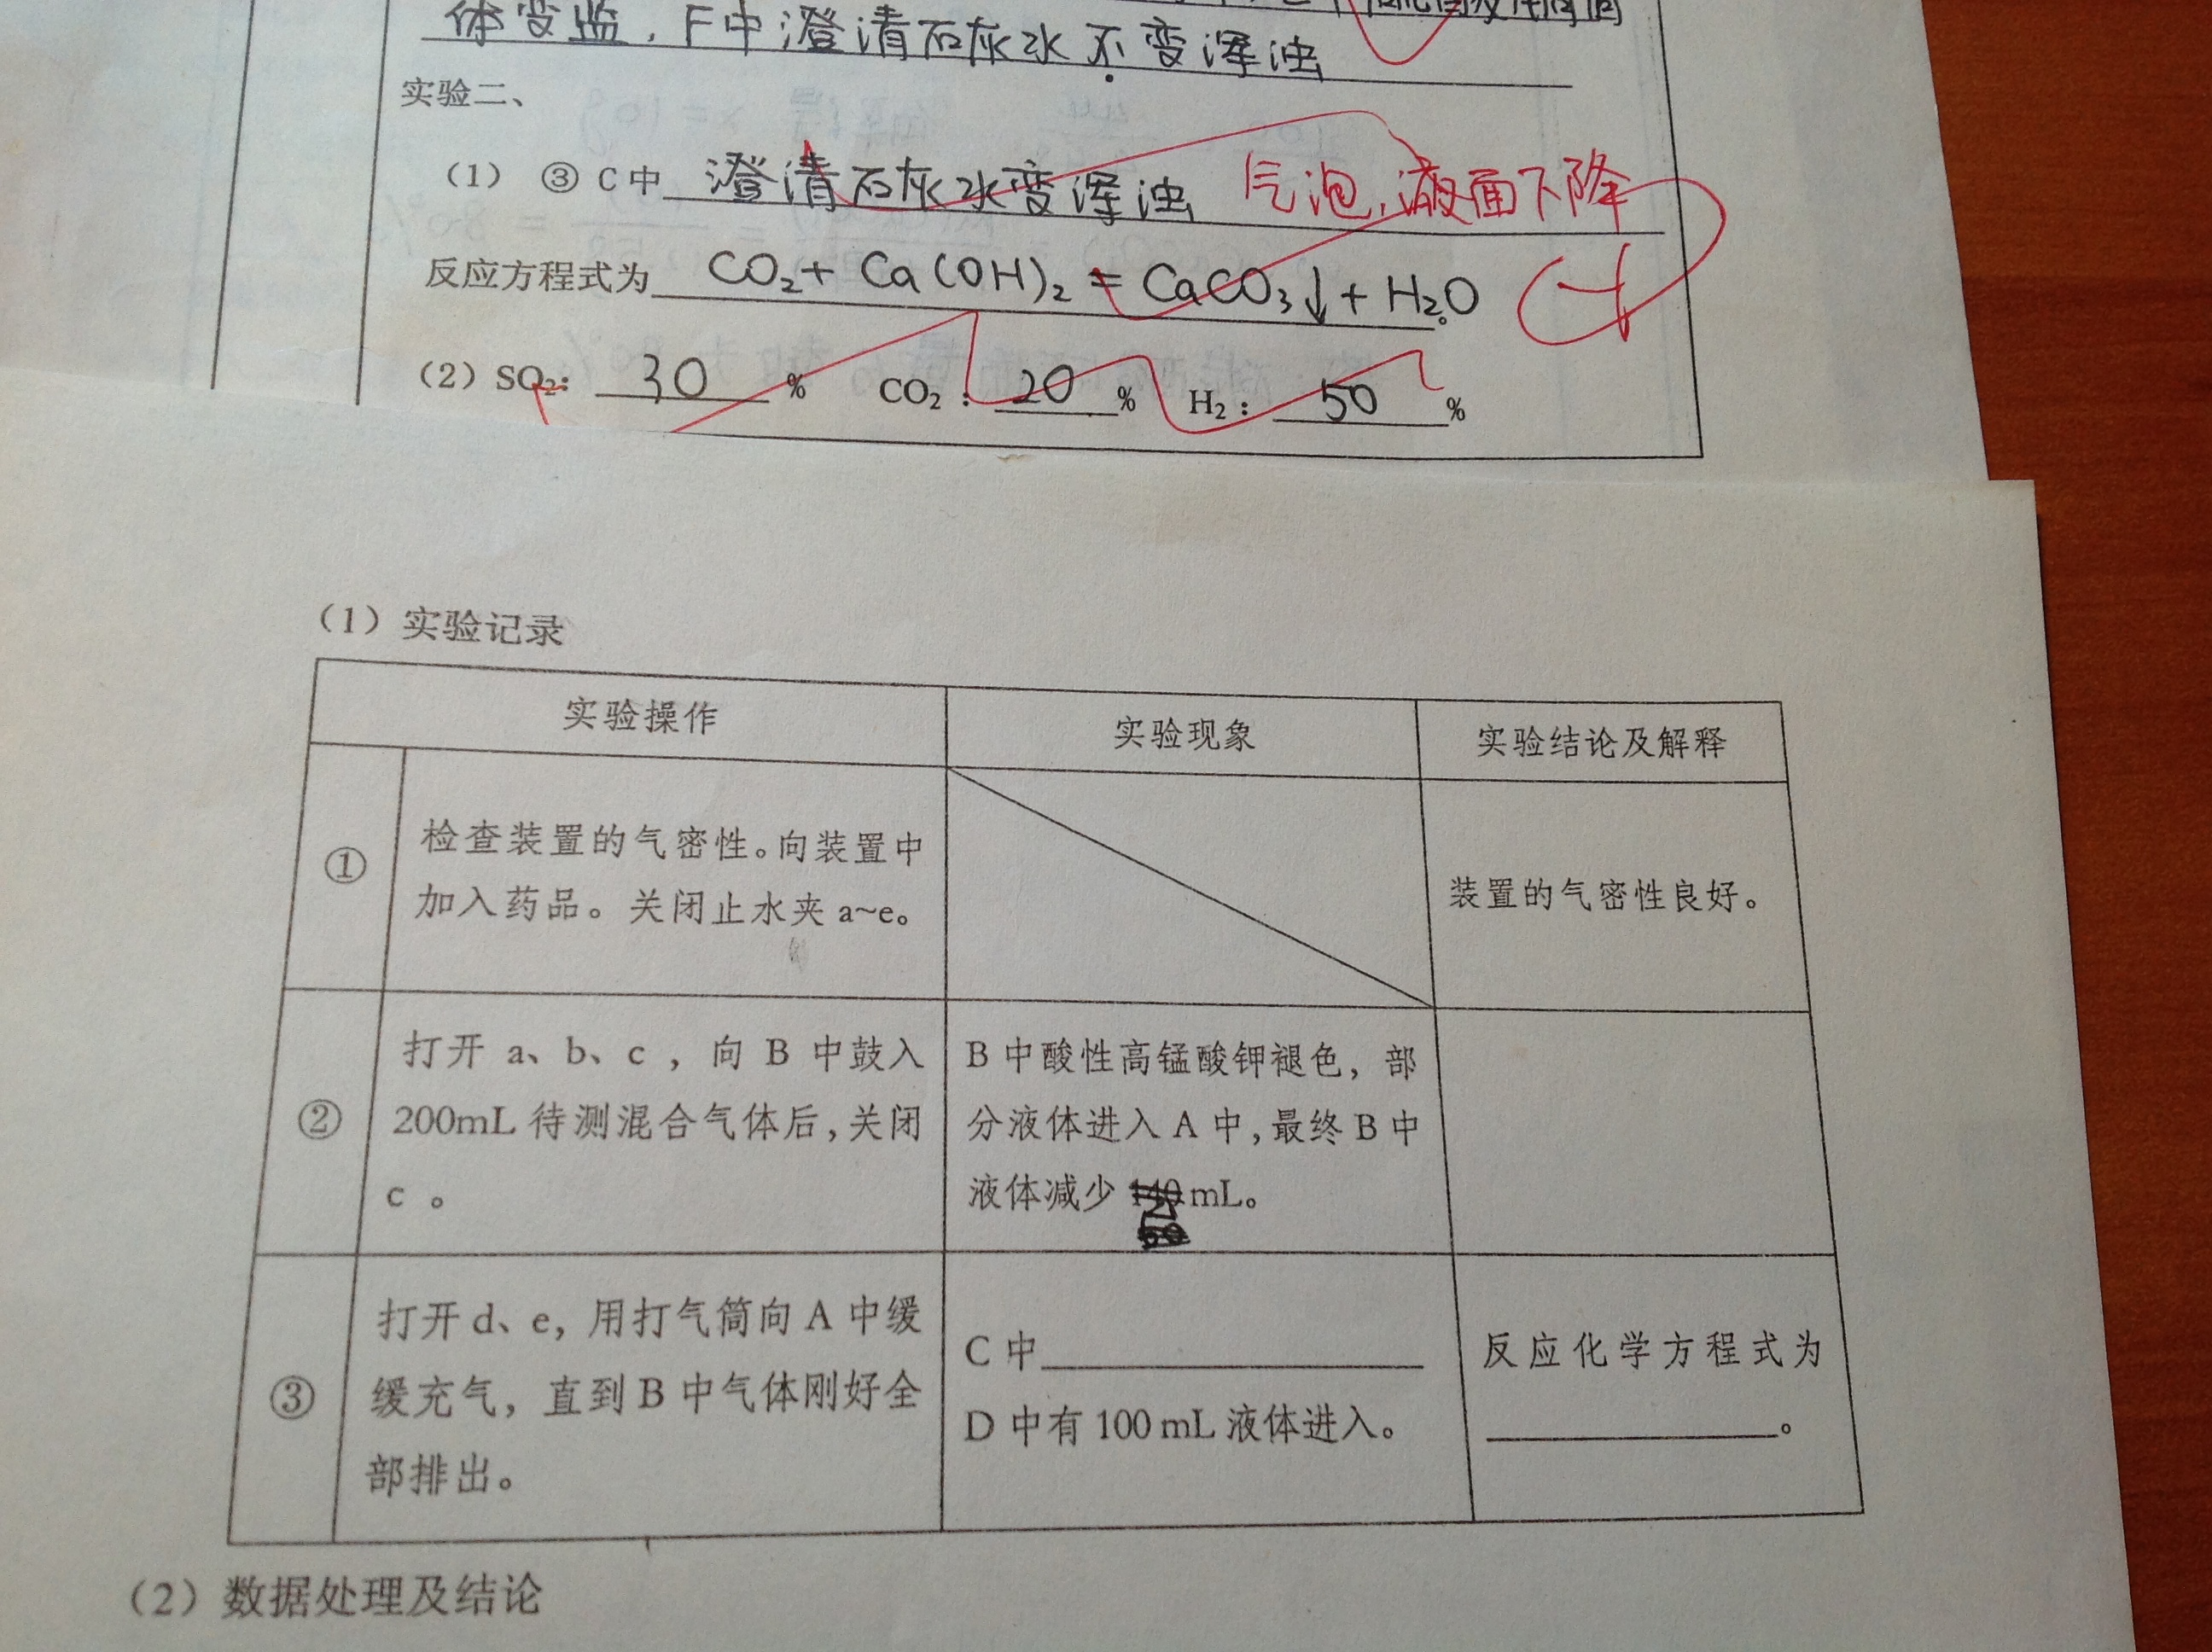 体变蓝，F中澄清石灰水不变浑浊
实验二、
（1） ③ C中 澄清石灰水变浑浊 气泡，液面下降
反应方程式为 CO₂+ Ca(OH)₂ = CaCO₃↓+ H₂O
（2）SO₂： 30 % CO₂： 20 % H₂： 50 %
（1）实验记录
实验操作 实验现象 实验结论及解释
① 检查装置的气密性。向装置中
加入药品。关闭止水夹 a~e。
装置的气密性良好。
② 打开 a、b、c ，向 B 中鼓入
200mL 待测混合气体后，关闭
c 。
B 中酸性高锰酸钾褪色，部
分液体进入 A 中，最终 B 中
液体减少 140 mL。
③ 打开 d、e，用打气筒向 A 中缓
缓充气，直到 B 中气体刚好全
部排出。
C 中
D 中有 100 mL 液体进入。
反应化学方程式为
。
（2）数据处理及结论